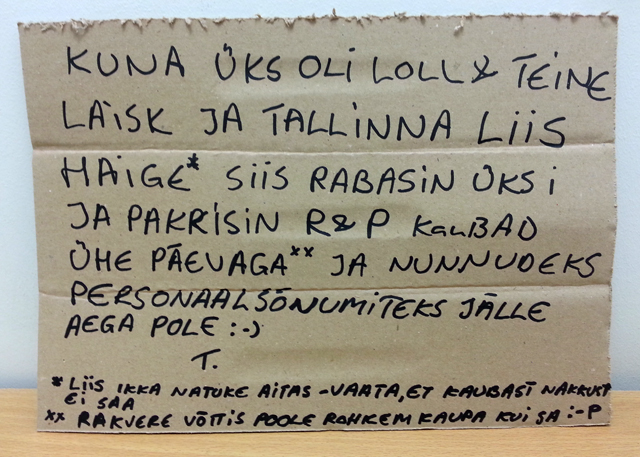 KUNA ÜKS OLI LOLL & TEINE
LAISK JA TALLINNA LIIS
HAIGE* SIIS RABASIN ÜKSI
JA PAKRISIN R&P KAUBAD
ÜHE PÄEVAGA** JA NUNNUDEKS
PERSONAALSÕNUMITEKS JÄLLE
AEGA POLE :-)
T.
* LIIS IKKA NATUKE AITAS - VAATA, ET KAUBAST NAKKUST
EI SAA
** RAKVERE VÕTTIS POOLE ROHKEM KAUPA KUI SA :-P